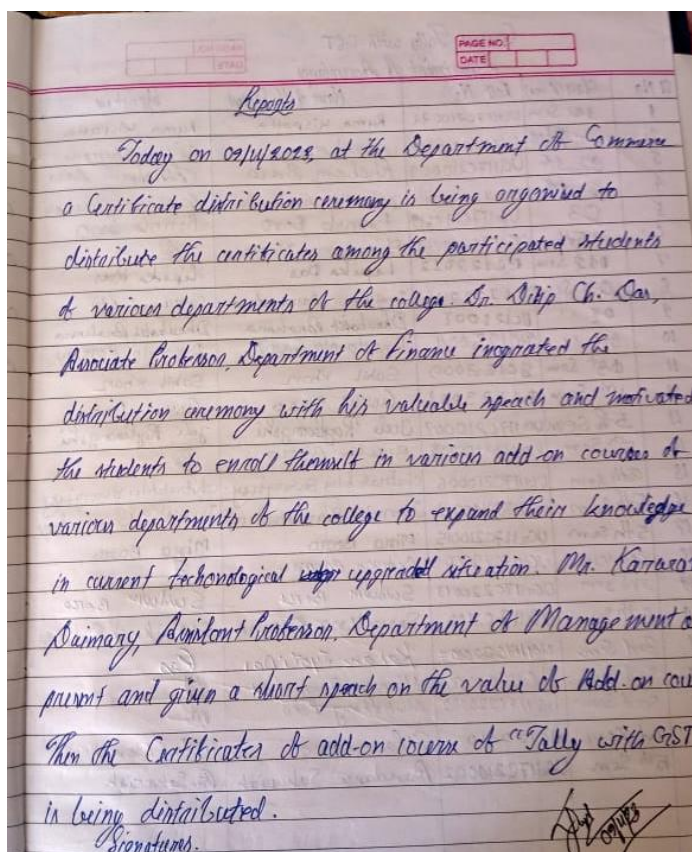 PAGE NO.
DATE
Reports
Today on 09/11/2023, at the Department of Commerce
a Certificate distribution ceremony is being organised to
distribute the certificates among the participated students
of various departments of the college. Dr. Dilip Ch. Das,
Associate Professor, Department of Finance ingrated the
distribution ceremony with his valuable speach and motivated
the students to enroll themself in various add-on courses of
various departments of the college to expand their knowledge
in current techonological upgraded situation. Mr.
Daimary, Assistant Professor, Department of Management
present and given a short speach on the value of Add-on cou
Then the Certificates of add-on course of "Tally with GST
is being distributed.
Signatures.
09/11/23